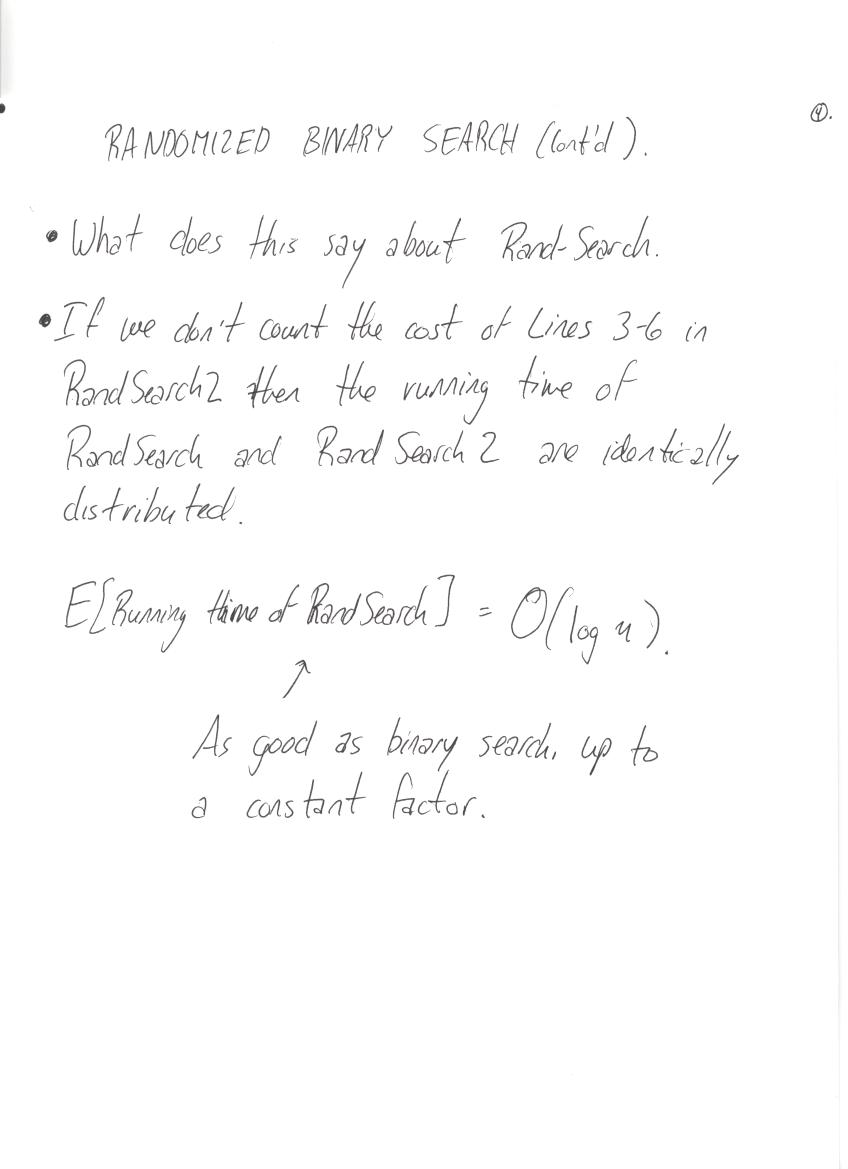 ④.
RANDOMIZED BINARY SEARCH (Cont'd).
• What does this say about Rand-Search.
• If we don't count the cost of Lines 3-6 in
RandSearch2 then the running time of
RandSearch and RandSearch2 are identically
distributed.
E[Running time of RandSearch] = O(log n).
↗
As good as binary search, up to
a constant factor.